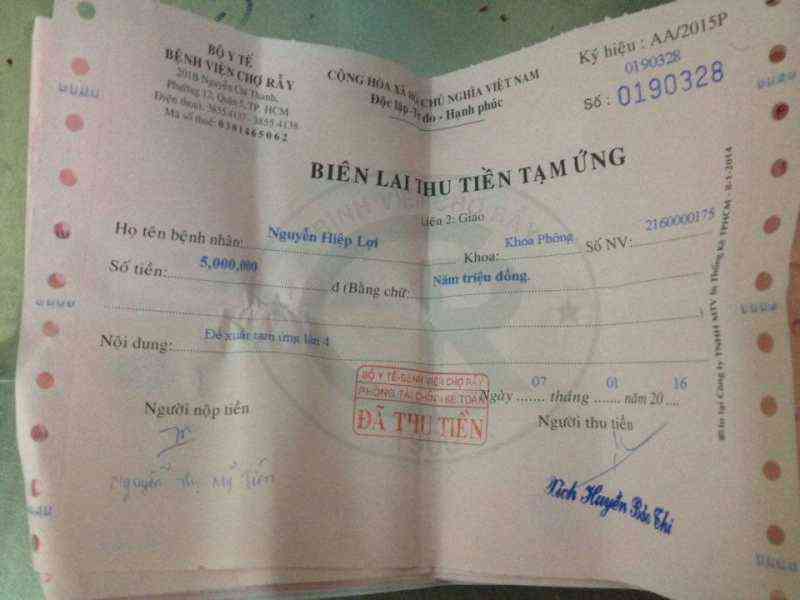 BỘ Y TẾ
BỆNH VIỆN CHỢ RẪY
201B Nguyễn Chí Thanh,
Phường 12, Quận 5, TP. HCM
Điện thoại: 3855.4137 - 3855.4138
Mã số thuế: 0301465062
CỘNG HÒA XÃ HỘI CHỦ NGHĨA VIỆT NAM
Độc lập - Tự do - Hạnh phúc
Ký hiệu : AA/2015P
0190328
Số : 0190328
BIÊN LAI THU TIỀN TẠM ỨNG
Liên 2: Giao
Họ tên bệnh nhân: Nguyễn Hiệp Lợi Khoa: Khoa Phòng Số NV: 2160000175
Số tiền: 5,000,000 đ (Bằng chữ: Năm triệu đồng.
)
Nội dung: Đề xuất tạm ứng lần 4
BỘ Y TẾ-BỆNH VIỆN CHỢ RẪY
PHÒNG TÀI CHÍNH KẾ TOÁN
ĐÃ THU TIỀN
Ngày 07 tháng 01 năm 20 16
Người nộp tiền
Người thu tiền
Nguyễn Thị Mỹ Tiên
Huyền Bảo Thi
In tại Công ty TNHH MTV In Thống Kê TPHCM - 8-1-2014
BỆNH VIỆN CHỢ RẪY